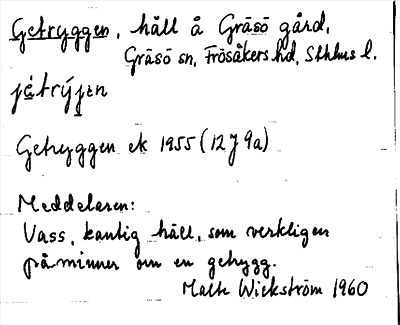 Getryggen, häll å Gräsö gård,
Gräsö sn, Frösåkers hd, Sthlms l.
jètrýjɛn
Getryggen ek 1955 (12J 9a)
Meddelaren:
Vass, kantig häll, som verkligen
påminner om en getrygg.
Malte Wickström 1960